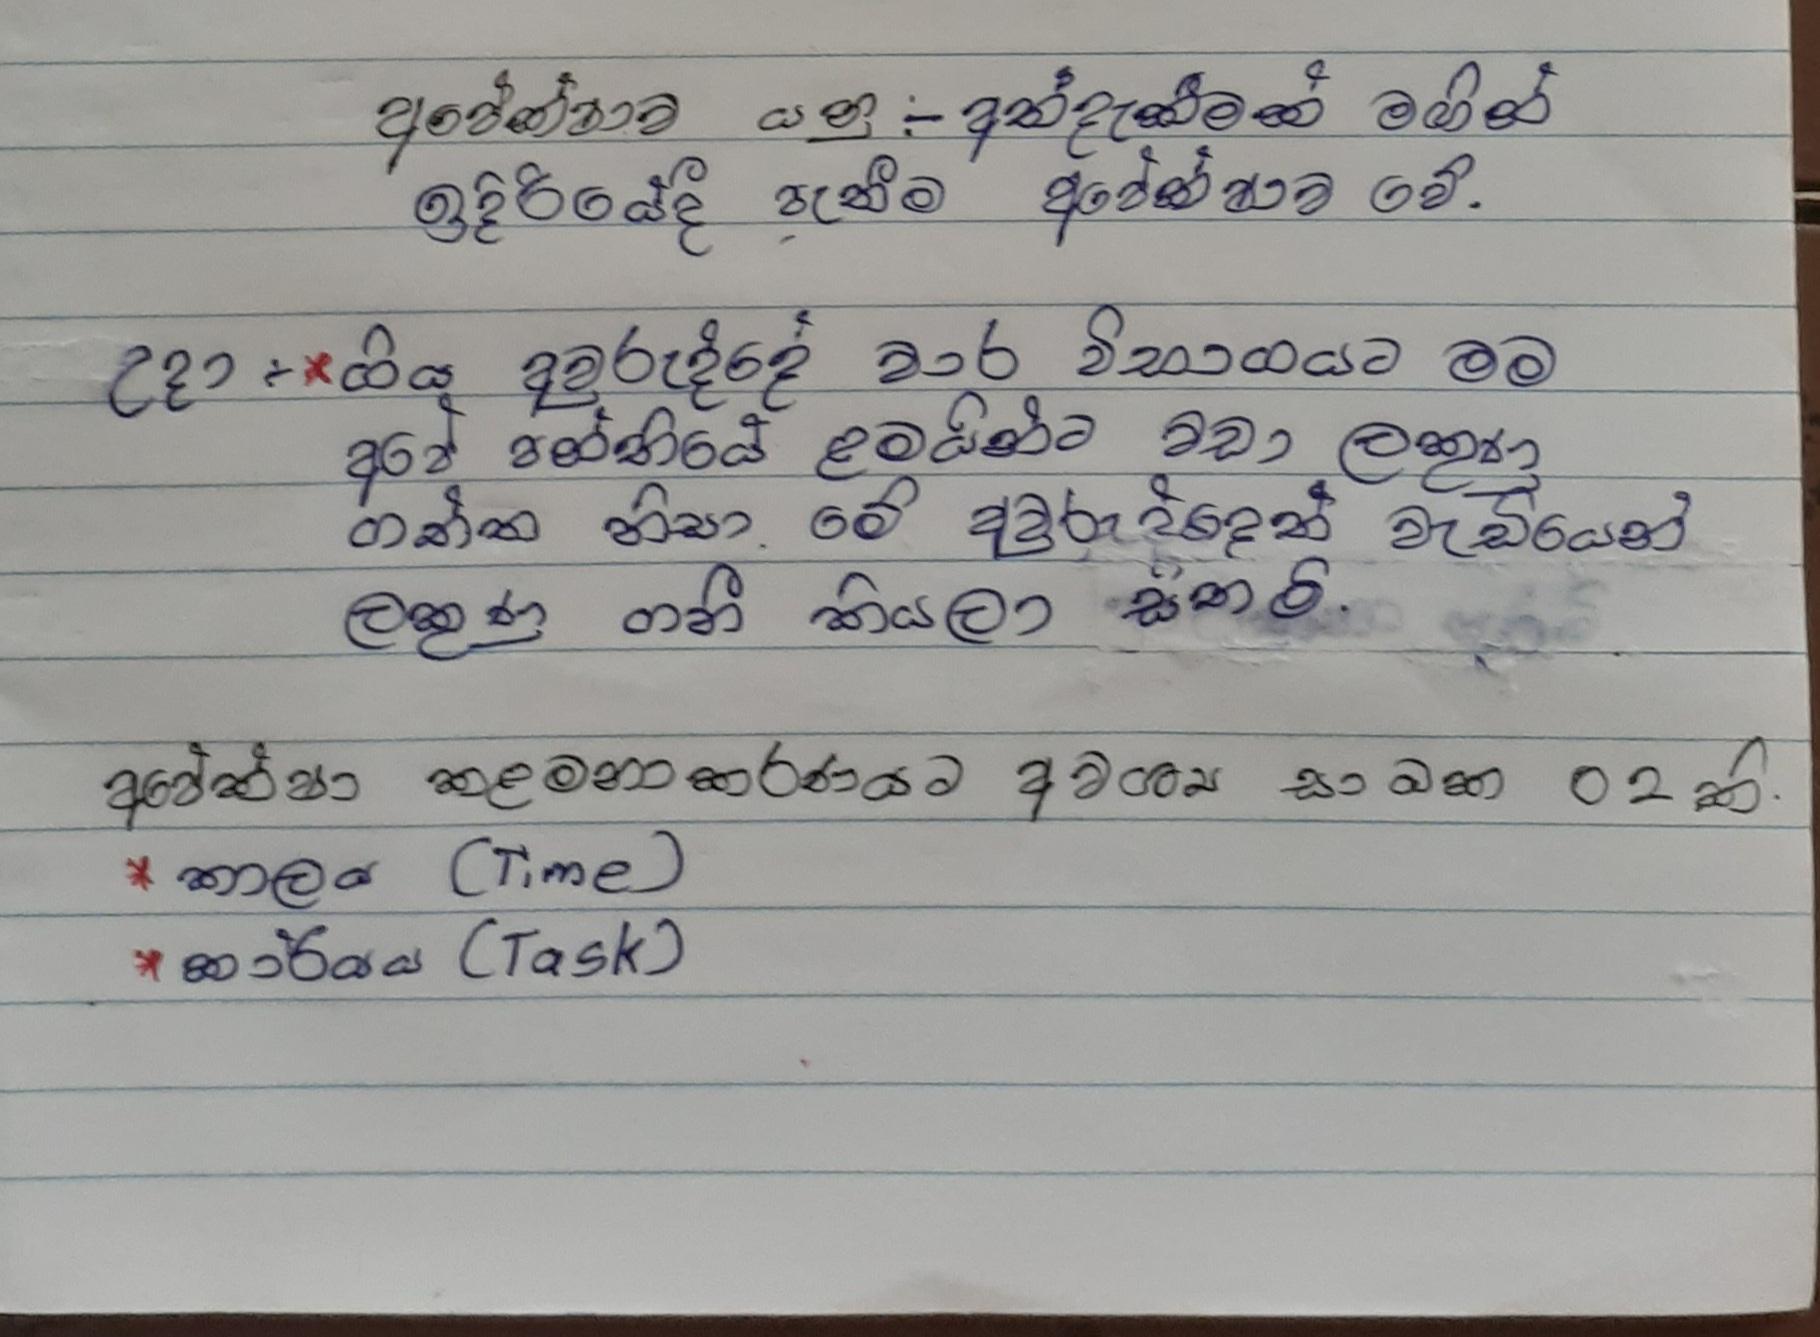 අපේක්ෂාව යනු :- අත්දැකීමක් මගින්
ඉදිරියේදී පැතීම අපේක්ෂාව වේ.
උදා :- *ගිය අවුරුද්දේ වාර විභාගයට මම
අපේ පන්තියේ ළමයින්ට වඩා ලකුණු
ගත්ත නිසා මේ අවුරුද්දෙත් වැඩියෙන්
ලකුණු ගනී කියලා සිතමි.
අපේක්ෂා කළමනාකරණයට අවශ්‍ය සාධක 02 කි.
* කාලය (Time)
* කාර්යය (Task)